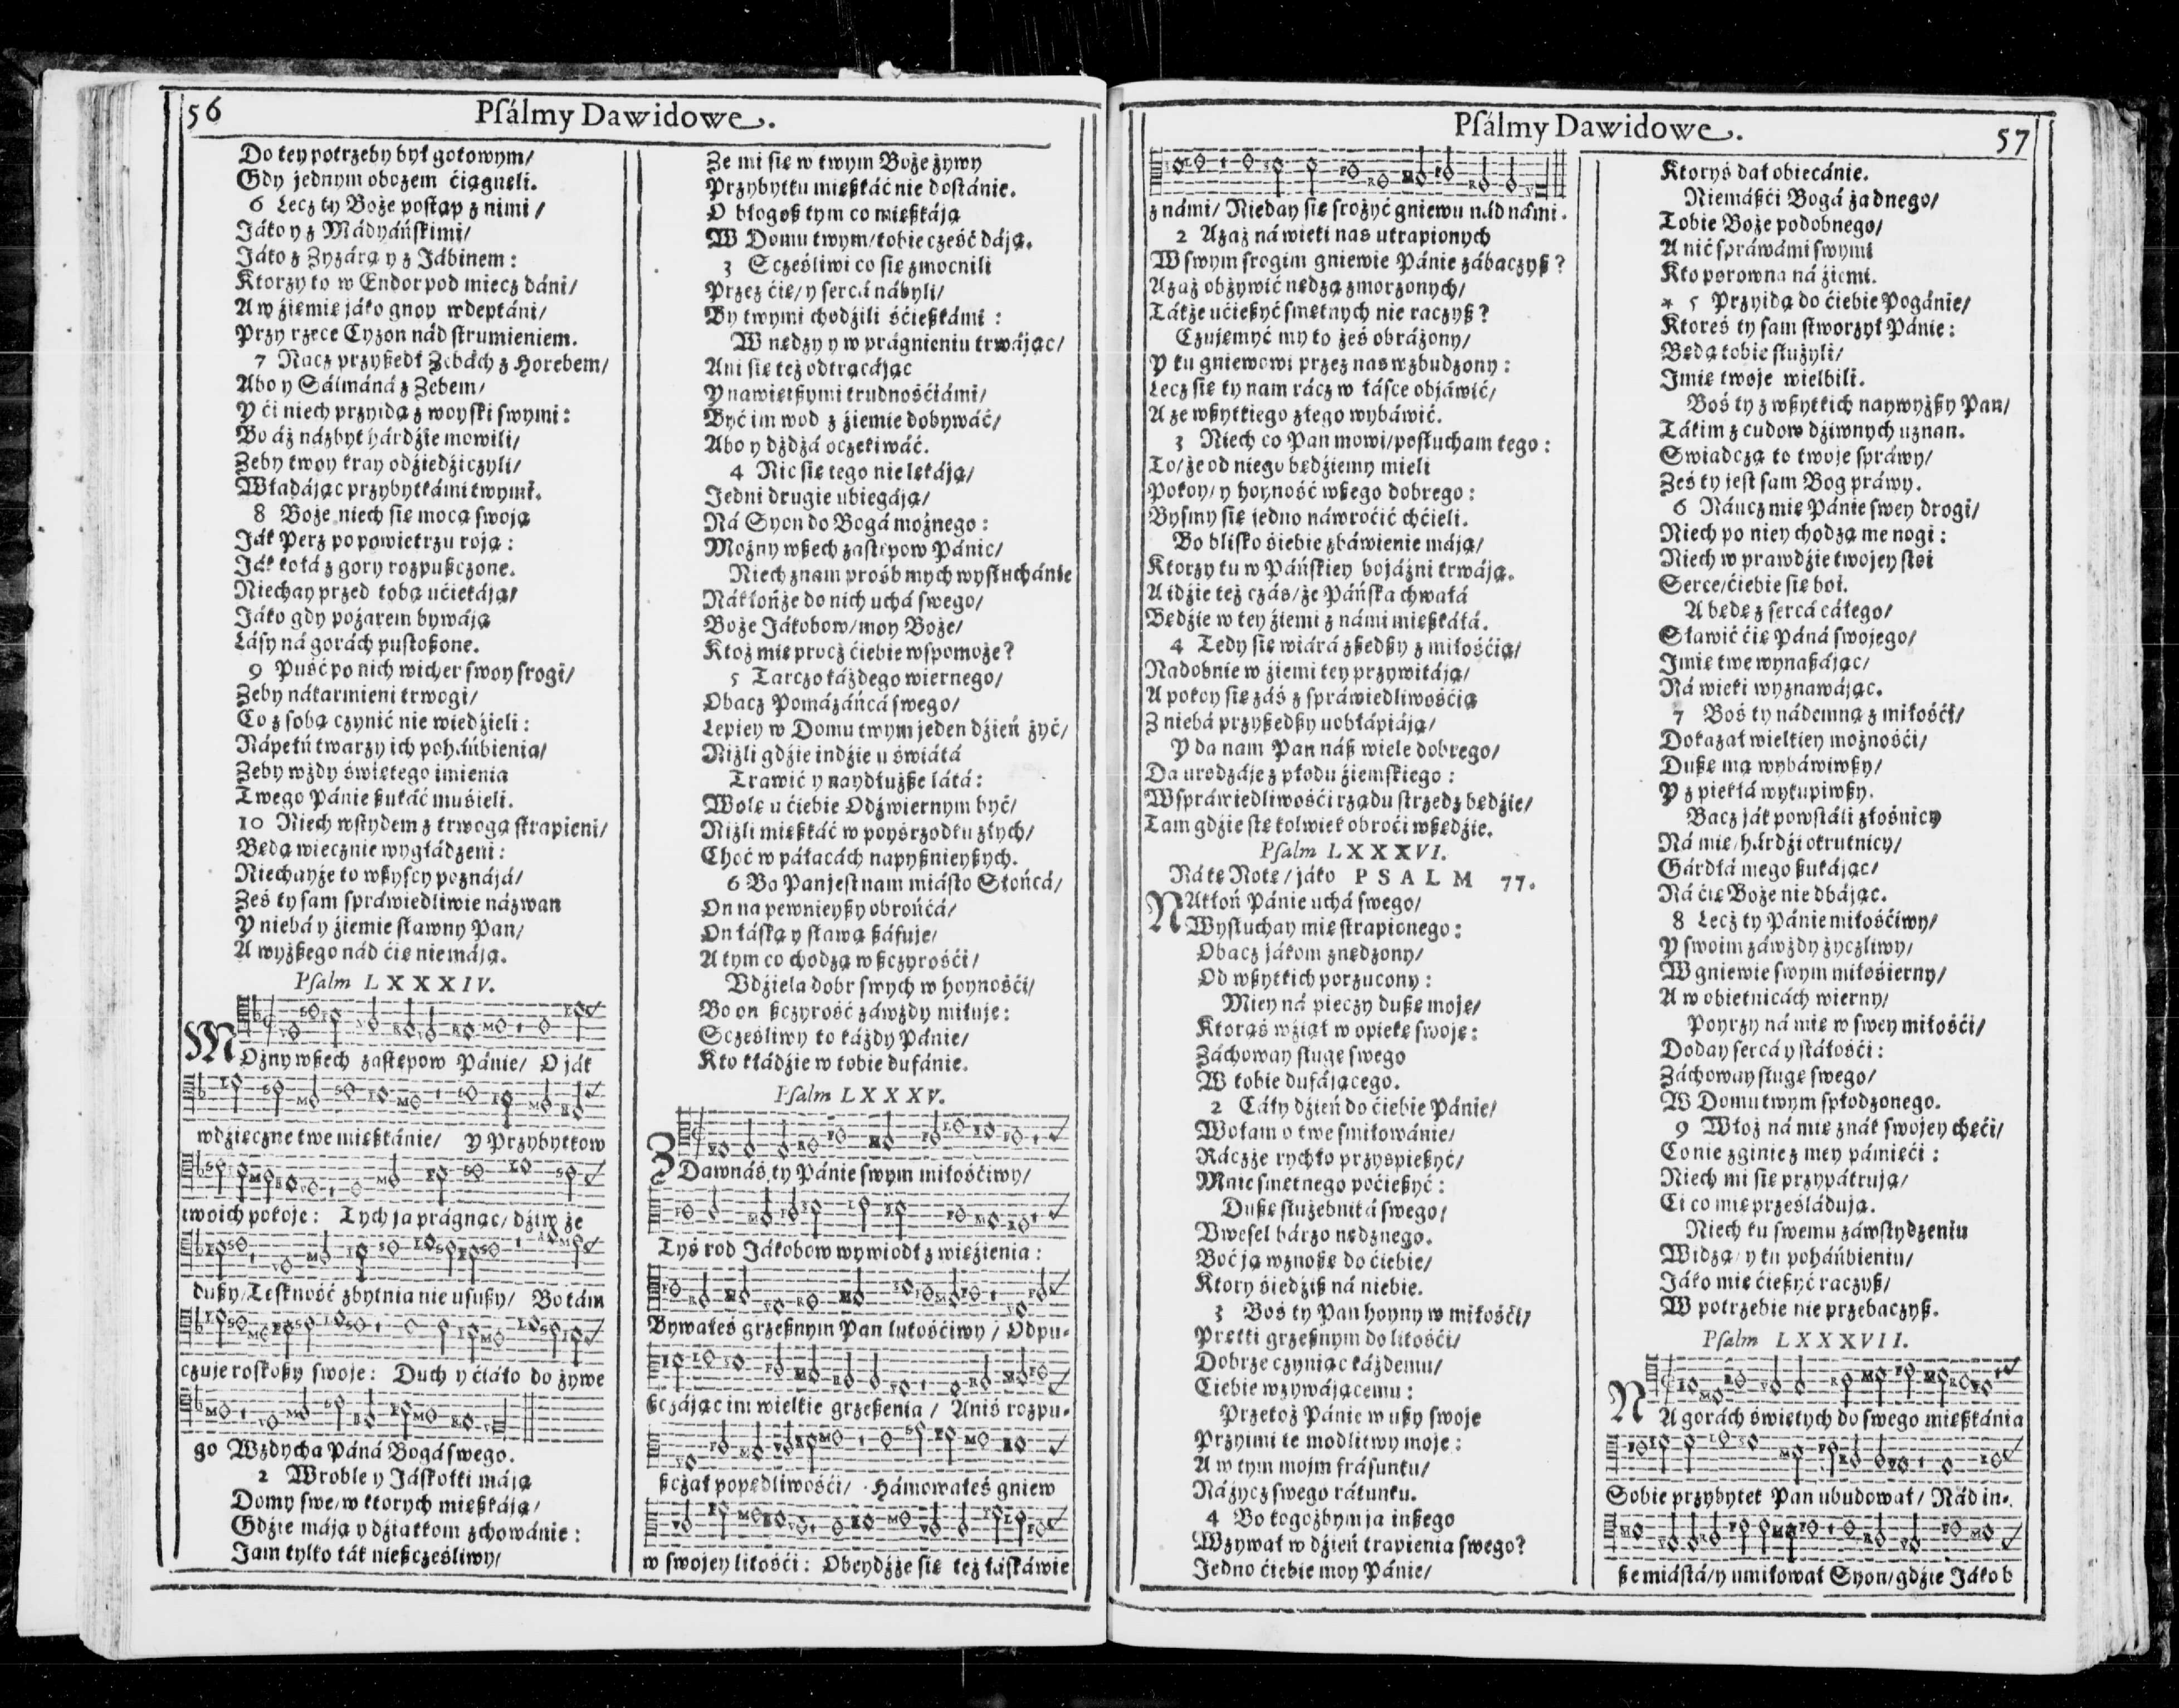 56
Psálmy Dawidowe.
Do tey potrzeby był gotowym/
Gdy jednym obozem ćiągnęli.
6 Lecz ty Boże postąp z nimi/
Jáko y z Mádyáńskimi/
Jáko z Zyzárą y z Jábinem:
Ktorzy to w Endor pod miecz dáni/
A w źiemię jáko gnoy wdeptáni/
Przy rzece Cyzon nád strumieniem.
7 Nácz przyßedł Zebách z Horebem/
Abo y Sálmáná z Zebem/
Y ći niech przyidą z woyski swymi:
Bo áż názbyt hárdźie mowili/
Zeby twoy kray odźiedźiczyli/
Władájąc przybytkámi twymi.
8 Boże niech się mocą swoją
Ják Perz po powietrzu roją:
Ják kołá z gory rozpußczone.
Niechay przed tobą ućiekáją/
Jáko gdy pożarem bywáją
Lásy ná gorách pustoßone.
9 Puść po nich wicher swoy srogi/
Zeby nákarmieni trwogi/
Co z sobą czynić nie wiedźieli:
Nápełń twarzy ich poháńbienia/
Zeby wżdy świętego imienia
Twego Pánie ßukáć muśieli.
10 Niech wstydem z trwogą strapieni/
Będą wiecznie wygłádzeni:
Niechayże to wßyscy poznájá/
Ześ ty sam spráwiedliwie názwan
Y niebá y źiemie sławny Pan/
A wyżßego nád ćię nie máją.
Psalm LXXXIV.
MOżny wßech zastępow Pánie/ O ják
wdźięczne twe mießkánie/ Y Przybytkow
twoich pokoje: Tych ja prágnąc/ dźiw że
dußy/ Teskność zbytnia nie usußy/ Bo tám
czuje roskoßy swoje: Duch y ćiáło do żywe
go Wzdycha Páná Bogá swego.
2 Wroble y Jáskołki máją
Domy swe/ w ktorych mießkáją/
Gdźie máją y dźiatkom zchowánie:
Jam tylko ták nießczęśliwy/
Ze mi się w twym Boże żywy
Przybytku mießkáć nie dostánie.
O błogoß tym co mießkáją
W Domu twym/ tobie cześć dáją.
3 Sczęśliwi co się zmocnili
Przez ćię/ y sercá nábyli/
By twymi chodźili śćießkámi:
W nędzy y w prágnieniu trwájąc/
Ani się też odtrącájąc
Y nawiętßymi trudnośćiámi/
Być im wod z źiemie dobywáć/
Abo y dżdżá oczekiwáć.
4 Nic się tego nie lękáją/
Jedni drugie ubiegáją/
Ná Syon do Bogá możnego:
Możny wßech zastępow Pánie/
Niech znam prośb mych wysłuchánie
Nákłońże do nich uchá swego/
Boże Jákobow/ moy Boże/
Ktoż mię procż ćiebie wspomoże?
5 Tarczo káżdego wiernego/
Obacz Pomázáńcá swego/
Lepiey w Domu twym jeden dźień żyć/
Niżli gdźie indźie u świátá
Trawić y naydłużße látá:
Wolę u ćiebie Odźwiernym być/
Niżli mießkáć w poyśrzodku złych/
Choć w páłacách napyßnieyßych.
6 Bo Pan jest nam miásto Słońcá/
On na pewnieyßy obrońćá/
On łáską y sławą ßáfuje/
A tym co chodzą w ßczyrośći/
Vdźiela dobr swych w hoynośći/
Bo on ßczyrość záwżdy miłuje:
Sczęśliwy to káżdy Pánie/
Kto kłádźie w tobie dufánie.
Psalm LXXXV.
ZDawnáś ty Pánie swym miłośćiwy/
Tyś rod Jákobow wywiodł z więźienia:
Bywałeś grzeßnym Pan lutośćiwy/ Odpu-
ßczájąc im wielkie grzeßenia/ Aniś rozpu-
ßczał popędliwośći/ Hámowałeś gniew
w swojey litośći: Obeydźże się też łáskáwie
Psálmy Dawidowe.
57
z námi/ Nieday się srożyć gniewu nád námi.
2 Azaż ná wieki nas utrapionych
W swym srogim gniewie Pánie zábaczyß?
Azaż obżywić nędzą zmorzonych/
Tákże ućießyć smętnych nie raczyß?
Czujemyć my to żeś obráżony/
Y ku gniewowi przez nas wzbudzony:
Lecz się ty nam rácz w łásce objáwić/
A ze wßytkiego złego wybáwić.
3 Niech co Pan mowi/ posłucham tego:
To/ że od niego będźiemy mieli
Pokoy/ y hoyność wßego dobrego:
Bysmy się jedno náwroćić chćieli.
Bo blisko śiebie zbáwienie máją/
Ktorzy tu w Páńskiey bojáźni trwáją.
A idźie też czás/ że Páńska chwałá
Będźie w tey źiemi z námi mießkáłá.
4 Tedy się wiárá zßedßy z miłośćią/
Nadobnie w źiemi tey przywitáją/
A pokoy się záś z spráwiedliwośćią
Z niebá przyßedßy uobłápiáją/
Y da nam Pan náß wiele dobrego/
Da urodzáje z płodu źiemskiego:
W spráwiedliwośći rządu strzedz będźie/
Tam gdźie się kolwiek obroći wßędźie.
Psalm LXXXVI.
Ná tę Notę/ jáko PSALM 77.
NAkłoń Pánie uchá swego/
Wysłuchay mię strapionego:
Obacz jákom znędzony/
Od wßytkich porzucony:
Miey ná pieczy dußę moję/
Ktorąś wźiął w opiekę swoję:
Záchoway sługę swego
W tobie dufájącego.
2 Cáły dźień do ćiebie Pánie/
Wołam o twe smiłowánie/
Ráczże rychło przyspießyć/
Mnie smętnego poćießyć:
Dußę służebniká swego/
Vwesel bárzo nędznego.
Boć ją wznoßę do ćiebie/
Ktory śiedźiß ná niebie.
3 Boś ty Pan hoyny w miłośći/
Prętki grzeßnym do litośći/
Dobrze czyniąc káżdemu/
Ciebie wzywájącemu:
Przetoż Pánie w ußy swoje
Przyimi te modlitwy moje:
A w tym mojm frásunku/
Náżycz swego rátunku.
4 Bo kogożbym ja inßego
Wzywał w dźień trapienia swego?
Jedno ćiebie moy Pánie/
Ktoryś dał obiecánie.
Niemáßći Bogá żadnego/
Tobie Boże podobnego/
A nić spráwámi swymi
Kto porowna ná źiemi.
* 5 Przyidą do ćiebie Pogánie/
Ktoreś ty sam stworzył Pánie:
Będą tobie służyli/
Jmię twoje wielbili.
Boś ty z wßytkich naywyżßy Pan/
Tákim z cudow dźiwnych uznan.
Swiadczą to twoje spráwy/
Ześ ty jest sam Bog práwy.
6 Náucz mię Pánie swey drogi/
Niech po niey chodzą me nogi:
Niech w prawdźie twojey stoi
Serce/ ćiebie się boi.
A będę z sercá cáłego/
Sławić ćię Páná swojego/
Jmię twe wynaßájąc/
Ná wieki wyznawájąc.
7 Boś ty nádemną z miłośći/
Dokazał wielkiey możnośći/
Dußę mą wybáwiwßy/
Y z piekłá wykupiwßy.
Bacz ják powstáli złośnicy
Ná mię/ hárdźi okrutnicy/
Gárdłá mego ßukájąc/
Ná ćię Boże nie dbájąc.
8 Lecż ty Pánie miłośćiwy/
Y swoim záwżdy życzliwy/
W gniewie swym miłośierny/
A w obietnicách wierny/
Poyrzy ná mię w swey miłośći/
Doday sercá y stáłośći:
Záchoway sługę swego/
W Domu twym spłodzonego.
9 Włoż ná mię znák swojey chęći/
Co nie zginie z mey pámięći:
Niech mi się przypátrują/
Ci co mię prześládują.
Niech ku swemu záwstydzeniu
Widzą/ y ku poháńbieniu/
Jáko mię ćießyć raczyß/
W potrzebie nie przebaczyß.
Psalm LXXXVII.
NA gorách świętych do swego mießkánia
Sobie przybytek Pan ubudował/ Nád in-
ße miástá/ y umiłował Syon/ gdźie Jákob